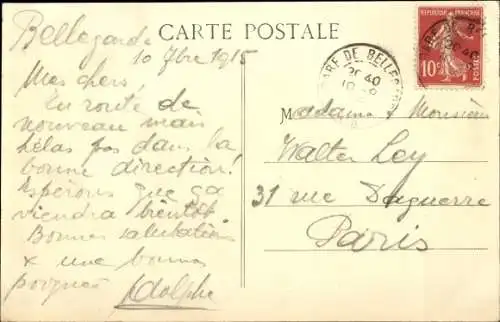 CARTE POSTALE
Bellegarde
10 7bre 1915
Mes chers,
En route de
nouveau mais
hélas pas dans la
bonne direction!
Espérons que ça
viendra bientôt
Bonnes salutations
& une bonne
poignée Adolphe
REPUBLIQUE FRANÇAISE
10c
POSTES
GARE DE BELLEGARDE
20 40
Madame & Monsieur
Walter Ley
31 rue Daguerre
Paris